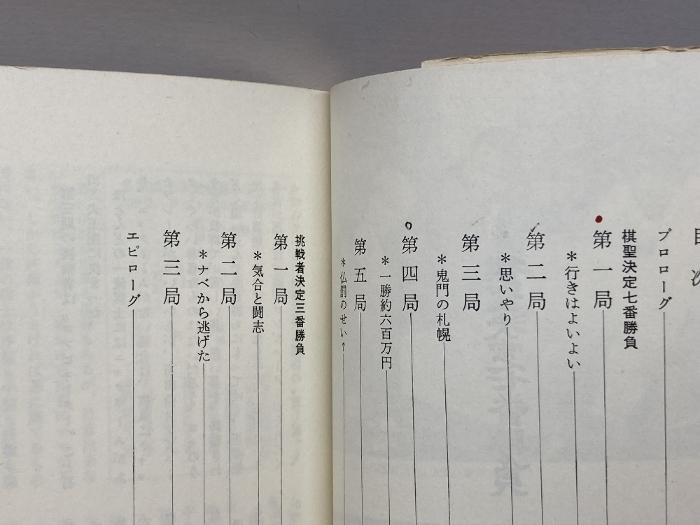 目次
プロローグ
棋聖決定七番勝負
第一局
＊行きはよいよい
第二局
＊思いやり
第三局
＊鬼門の札幌
第四局
＊一勝約六百万円
第五局
＊仏罰のせい？
挑戦者決定三番勝負
第一局
＊気合と闘志
第二局
＊ナベから逃げた
第三局
エピローグ